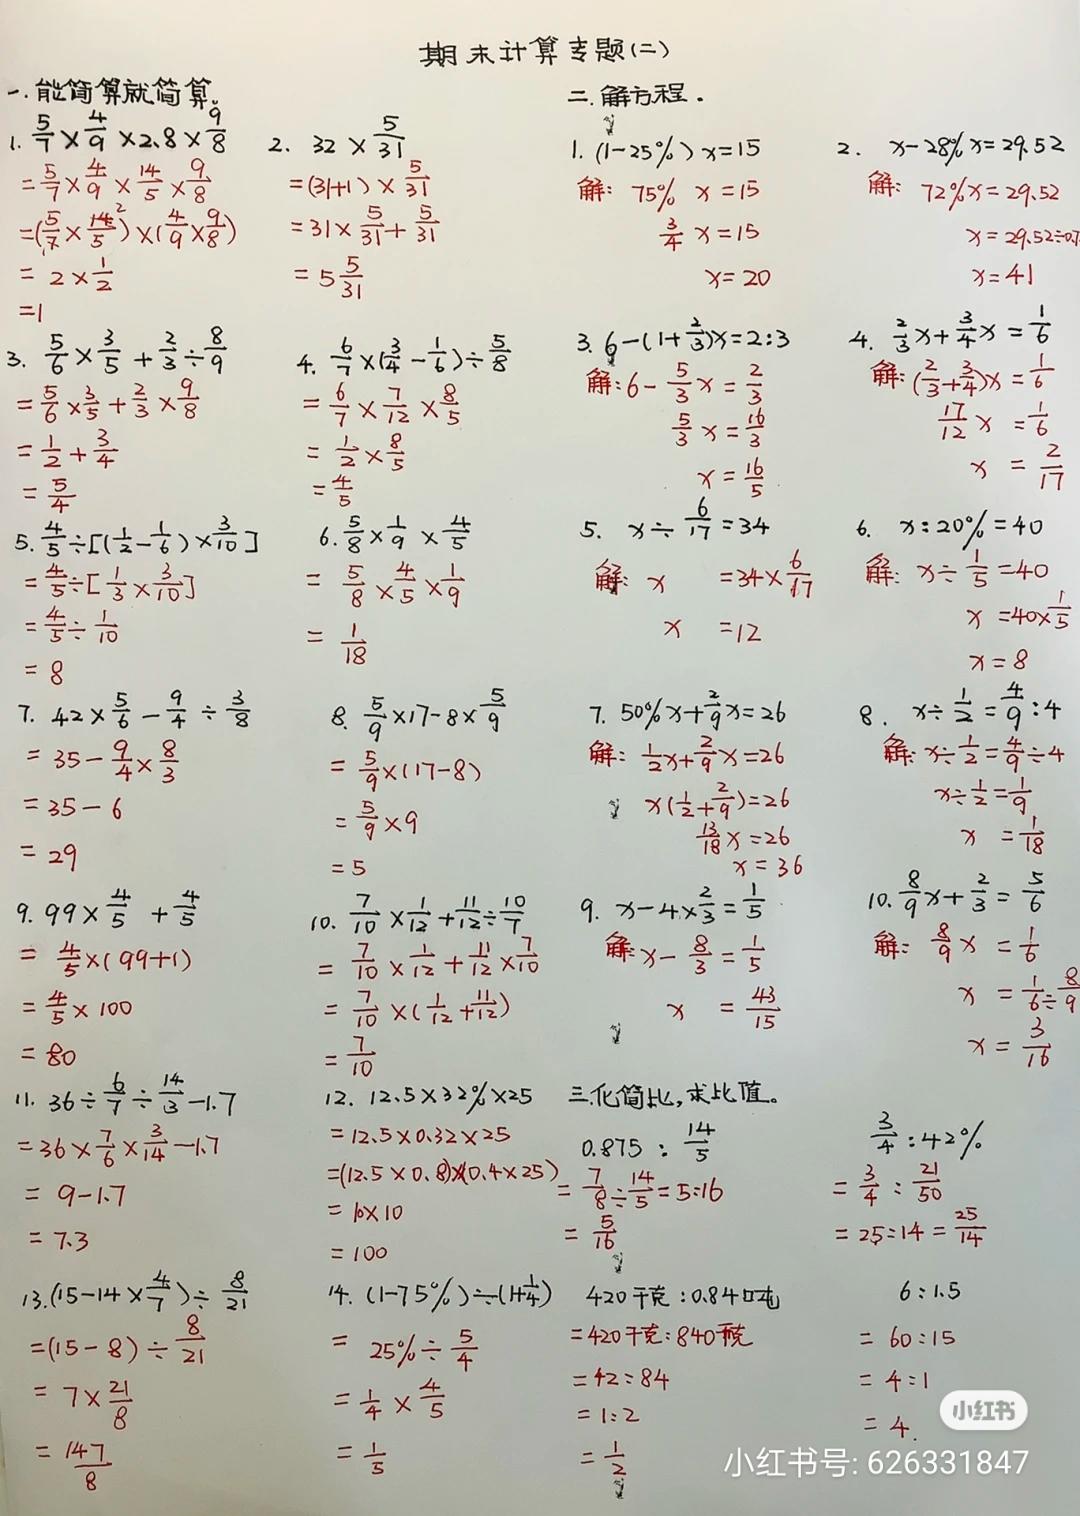 期末计算专题(二)
一.能简算就简算。
1. 5/7 × 4/9 × 2.8 × 9/8
= 5/7 × 4/9 × 14/5 × 9/8
= (5/7 × 14/5) × (4/9 × 9/8)
= 2 × 1/2
= 1
2. 32 × 5/31
= (31+1) × 5/31
= 31 × 5/31 + 5/31
= 5 5/31
3. 5/6 × 3/5 + 2/3 ÷ 8/9
= 5/6 × 3/5 + 2/3 × 9/8
= 1/2 + 3/4
= 5/4
4. 6/7 × (3/4 - 1/6) ÷ 5/8
= 6/7 × 7/12 × 8/5
= 1/2 × 8/5
= 4/5
5. 4/5 ÷ [(1/2 - 1/6) × 3/10]
= 4/5 ÷ [1/3 × 3/10]
= 4/5 ÷ 1/10
= 8
6. 5/8 × 1/9 × 4/5
= 5/8 × 4/5 × 1/9
= 1/18
7. 42 × 5/6 - 9/4 ÷ 3/8
= 35 - 9/4 × 8/3
= 35 - 6
= 29
8. 5/9 × 17 - 8 × 5/9
= 5/9 × (17-8)
= 5/9 × 9
= 5
9. 99 × 4/5 + 4/5
= 4/5 × (99+1)
= 4/5 × 100
= 80
10. 7/10 × 1/12 + 11/12 ÷ 10/7
= 7/10 × 1/12 + 11/12 × 7/10
= 7/10 × (1/12 + 11/12)
= 7/10
11. 36 ÷ 6/7 ÷ 14/3 - 1.7
= 36 × 7/6 × 3/14 - 1.7
= 9 - 1.7
= 7.3
12. 12.5 × 32% × 25
= 12.5 × 0.32 × 25
= (12.5 × 0.8) × (0.4 × 25)
= 10 × 10
= 100
13. (15 - 14 × 4/7) ÷ 8/21
= (15 - 8) ÷ 8/21
= 7 × 21/8
= 147/8
14. (1-75%) ÷ (1+1/4)
= 25% ÷ 5/4
= 1/4 × 4/5
= 1/5
二.解方程.
1. (1-25%) x = 15
解: 75% x = 15
3/4 x = 15
x = 20
2. x - 28% x = 29.52
解: 72% x = 29.52
x = 29.52 ÷ 0.7
x = 41
3. 6 - (1 + 2/3) x = 2:3
解: 6 - 5/3 x = 2/3
5/3 x = 16/3
x = 16/5
4. 2/3 x + 3/4 x = 1/6
解: (2/3 + 3/4) x = 1/6
17/12 x = 1/6
x = 2/17
5. x ÷ 6/17 = 34
解: x = 34 × 6/17
x = 12
6. x : 20% = 40
解: x ÷ 1/5 = 40
x = 40 × 1/5
x = 8
7. 50% x + 2/9 x = 26
解: 1/2 x + 2/9 x = 26
x (1/2 + 2/9) = 26
13/18 x = 26
x = 36
8. x ÷ 1/2 = 4/9 : 4
解: x ÷ 1/2 = 4/9 ÷ 4
x ÷ 1/2 = 1/9
x = 1/18
9. x - 4 × 2/3 = 1/5
解: x - 8/3 = 1/5
x = 43/15
10. 8/9 x + 2/3 = 5/6
解: 8/9 x = 1/6
x = 1/6 ÷ 8/9
x = 3/16
三.化简比,求比值。
0.875 : 14/5
= 7/8 ÷ 14/5 = 5:16
= 5/16
3/4 : 42%
= 3/4 : 21/50
= 25:14 = 25/14
420千克 : 0.84吨
= 420千克 : 840千克
= 42:84
= 1:2
= 1/2
6 : 1.5
= 60:15
= 4:1
= 4.
小红书
小红书号: 626331847